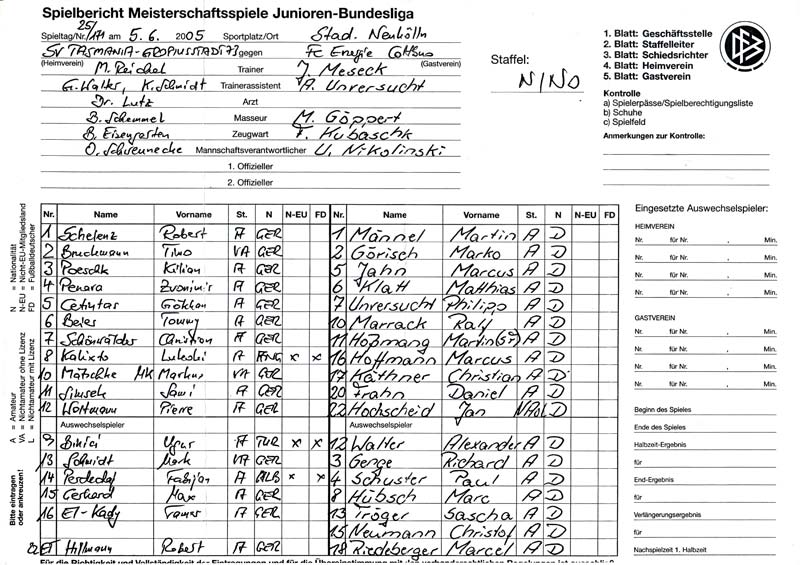 Spielbericht Meisterschaftsspiele Junioren-Bundesliga
Spieltag/Nr. 25/171 am 5.6.2005 Sportplatz/Ort Stad. Neukölln
SV TASMANIA-GROPIUSSTADT 73 gegen FC Energie Cottbus
(Heimverein) (Gastverein)
M. Reichel Trainer J. Meseck
G. Walter, K. Schmidt Trainerassistent A. Unversucht
Dr. Lutz Arzt
B. Schemmel Masseur M. Göppert
B. Eisengarten Zeugwart F. Kubaschk
O. Schwennecke Mannschaftsverantwortlicher U. Nikolinski
1. Offizieller
2. Offizieller
Staffel:
N/NO
1. Blatt: Geschäftsstelle
2. Blatt: Staffelleiter
3. Blatt: Schiedsrichter
4. Blatt: Heimverein
5. Blatt: Gastverein
DFB
Kontrolle
a) Spielerpässe/Spielberechtigungsliste
b) Schuhe
c) Spielfeld
Anmerkungen zur Kontrolle:
N = Nationalität
N-EU = Nicht-EU-Mitgliedsland
FD = Fußballdeutscher
A = Amateur
VA = Nichtamateur ohne Lizenz
L = Nichtamateur mit Lizenz
Bitte eintragen oder ankreuzen!
Nr. Name Vorname St. N N-EU FD Nr. Name Vorname St. N N-EU FD
1 Schelenz Robert A GER 1 Männel Martin A D
2 Bruckmann Timo VA GER 2 Görisch Marko A D
3 Poeschk Kilian A GER 5 Jahn Marcus A D
4 Penava Zvonimir A GER 6 Klatt Matthias A D
5 Cetintas Gökhan A GER 7 Unversucht Philipp A D
6 Beier Tommy A GER 10 Marrack Ralf A D
7 Schönwälder Christian A GER 11 Hoßmang Martin (SF) A D
8 Kalixto A x x 16 Hoffmann Marcus A D
10 Matschke MK Markus VA GER 17 Käthner Christian A D
11 Simsek Sami A GER 20 Frahn Daniel A D
12 Wortmann Pierre A GER 22 Hochscheid Jan D
Auswechselspieler Auswechselspieler
9 Bikici Ugur A TUR x x 12 Walter Alexander A D
13 Schmidt Mark VA GER 3 Genge Richard A D
14 Fabijan A ALB x x 4 Schuster Paul A D
15 Gerhard Max A GER 8 Hübsch Marc A D
16 El-Kady Tamer A GER 13 Tröger Sascha A D
15 Neumann Christof A D
ET Hillmann Robert A GER 18 Riedeberger Marcel A D
Eingesetzte Auswechselspieler:
HEIMVEREIN
Nr. für Nr. , Min.
Nr. für Nr. , Min.
Nr. für Nr. , Min.
Nr. für Nr. , Min.
GASTVEREIN
Nr. für Nr. , Min.
Nr. für Nr. , Min.
Nr. für Nr. , Min.
Nr. für Nr. , Min.
Beginn des Spieles
Ende des Spieles
Halbzeit-Ergebnis
für
End-Ergebnis
für
Verlängerungsergebnis
für
Nachspielzeit 1. Halbzeit